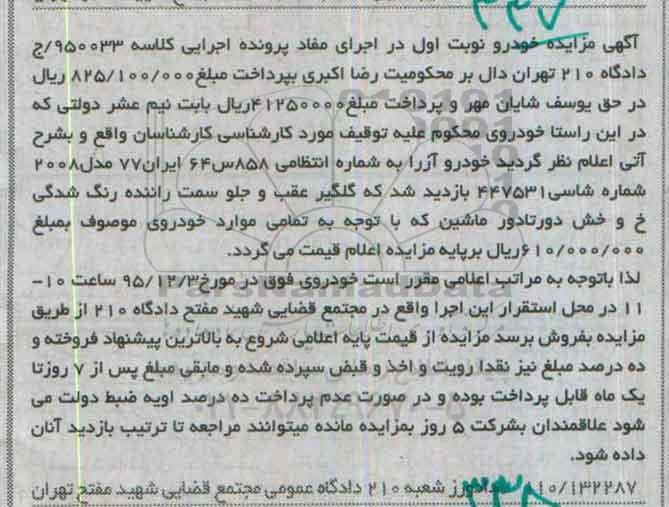 ۳۳۷
آگهی مزایده خودرو نوبت اول در اجرای مفاد پرونده اجرایی کلاسه ۹۵۰۰۳۳/ج
دادگاه ۲۱۰ تهران دال بر محکومیت رضا اکبری بپرداخت مبلغ۸۲۵/۱۰۰/۰۰۰ ریال
در حق یوسف شایان مهر و پرداخت مبلغ۴۱۲۵۰۰۰۰ریال بابت نیم عشر دولتی که
در این راستا خودروی محکوم علیه توقیف مورد کارشناسی کارشناسان واقع و بشرح
آتی اعلام نظر گردید خودرو آزرا به شماره انتظامی ۸۵۸س۶۴ ایران۷۷ مدل۲۰۰۸
شماره شاسی۴۴۷۵۳۱ بازدید شد که گلگیر عقب و جلو سمت راننده رنگ شدگی
خ و خش دورتادور ماشین که با توجه به تمامی موارد خودروی موصوف بمبلغ
۶۱۰/۰۰۰/۰۰۰ریال برپایه مزایده اعلام قیمت می گردد.
لذا باتوجه به مراتب اعلامی مقرر است خودروی فوق در مورخ۹۵/۱۲/۳ ساعت ۱۰-
۱۱ در محل استقرار این اجرا واقع در مجتمع قضایی شهید مفتح دادگاه ۲۱۰ از طریق
مزایده بفروش برسد مزایده از قیمت پایه اعلامی شروع به بالاترین پیشنهاد فروخته و
ده درصد مبلغ نیز نقدا رویت و اخذ و قبض سپرده شده و مابقی مبلغ پس از ۷ روزتا
یک ماه قابل پرداخت بوده و در صورت عدم پرداخت ده درصد اویه ضبط دولت می
شود علاقمندان بشرکت ۵ روز بمزایده مانده میتوانند مراجعه تا ترتیب بازدید آنان
داده شود.
۱۱۰/۱۳۲۲۸۷ دادورز شعبه ۲۱۰ دادگاه عمومی مجتمع قضایی شهید مفتح تهران
۳۳۸
ParsNamadData
۰۲۱-۸۸۳۴۹۶۷۰-۵